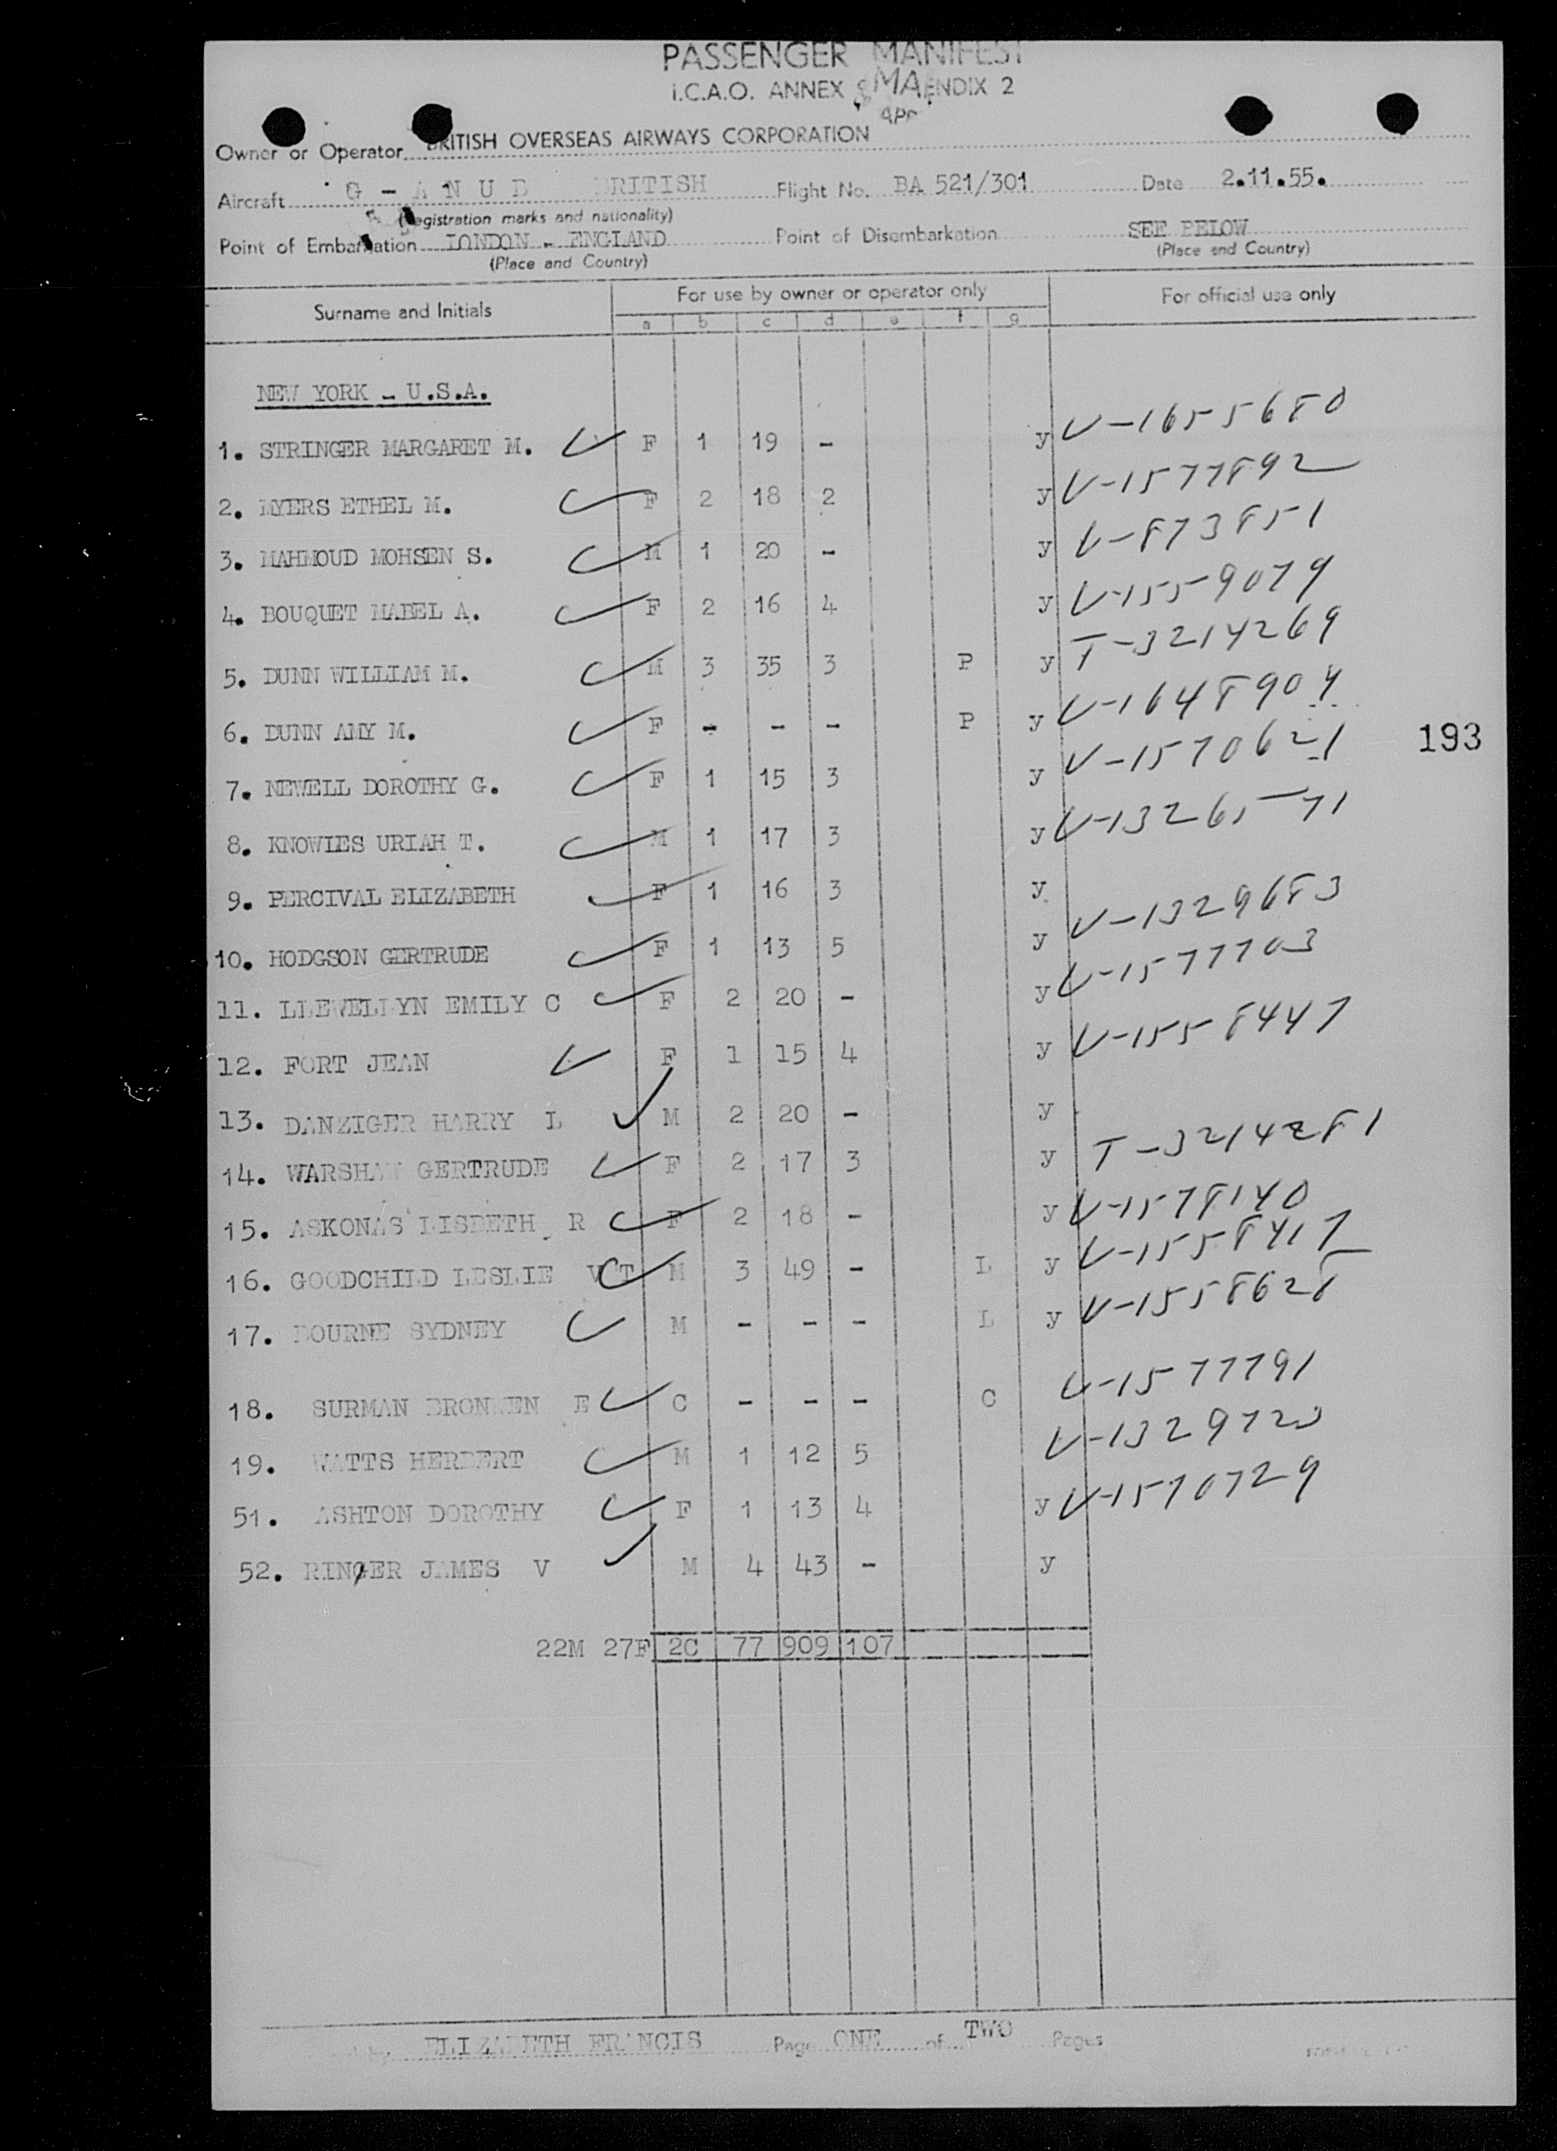 PASSENGER MANIFEST
I.C.A.O. ANNEX 9 APPENDIX 2
Owner or Operator BRITISH OVERSEAS AIRWAYS CORPORATION
Aircraft G - A N U B BRITISH Flight No. BA 521/301 Date 2.11.55.
(Registration marks and nationality)
Point of Embarkation LONDON - ENGLAND Point of Disembarkation SEE BELOW
(Place and Country) (Place and Country)
Surname and Initials For use by owner or operator only For official use only
a b c d e f g
NEW YORK - U.S.A.
1. STRINGER MARGARET M. F 1 19 - y V-1655680
2. MYERS ETHEL M. F 2 18 2 y V-1577892
3. MAHMOUD MOHSEN S. M 1 20 - y V-873851
4. BOUQUET MABEL A. F 2 16 4 y V-1559079
5. DUNN WILLIAM M. M 3 35 3 P y T-3214269
6. DUNN AMY M. F - - - P y V-1648904
7. NEWELL DOROTHY G. F 1 15 3 y V-1570621
193
8. KNOWLES URIAH T. M 1 17 3 y V-1326571
9. PERCIVAL ELIZABETH F 1 16 3 y
10. HODGSON GERTRUDE F 1 13 5 y V-1329683
11. LLEWELLYN EMILY C F 2 20 - y V-1577703
12. FORT JEAN F 1 15 4 y V-1558447
13. DANZIGER HARRY L M 2 20 - y
14. WARSHAW GERTRUDE F 2 17 3 y T-3214281
15. ASKONAS LISBETH R F 2 18 - y V-1578140
16. GOODCHILD LESLIE V T M 3 49 - L y V-1558417
17. BOURNE SYDNEY M - - - L y V-1558628
18. SURMAN BRONWEN E C - - - C V-1577791
19. WATTS HERBERT M 1 12 5 V-1329723
51. ASHTON DOROTHY F 1 13 4 y V-1570729
52. RINGER JAMES V M 4 43 - y
22M 27F 2C 77 909 107
by ELIZABETH FRANCIS Page ONE of TWO Pages